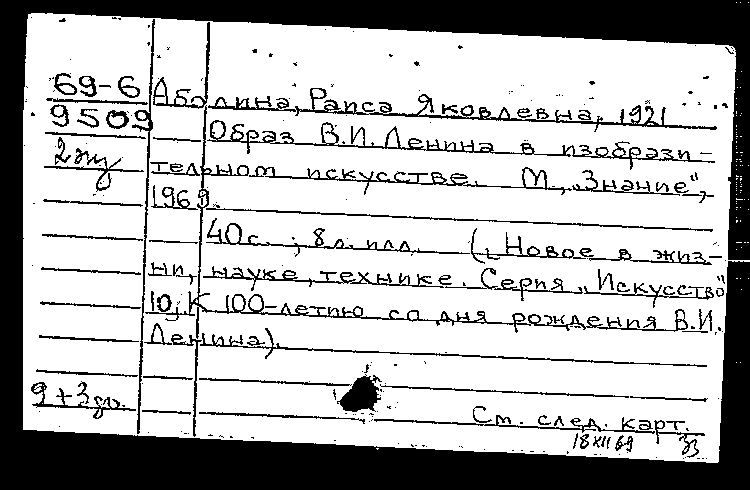 69-6 Аболина, Раиса Яковлевна, 1921
9509 Образ В.И. Ленина в изобрази-
2 экз тельном искусстве. М., "Знание",
1969.
40с.; 8л. илл. ("Новое в жиз-
ни, науке, технике. Серия "Искусство"
10, К 100-летию со дня рождения В.И.
Ленина).
9+3дл.
См. след. карт.
18 XII 69